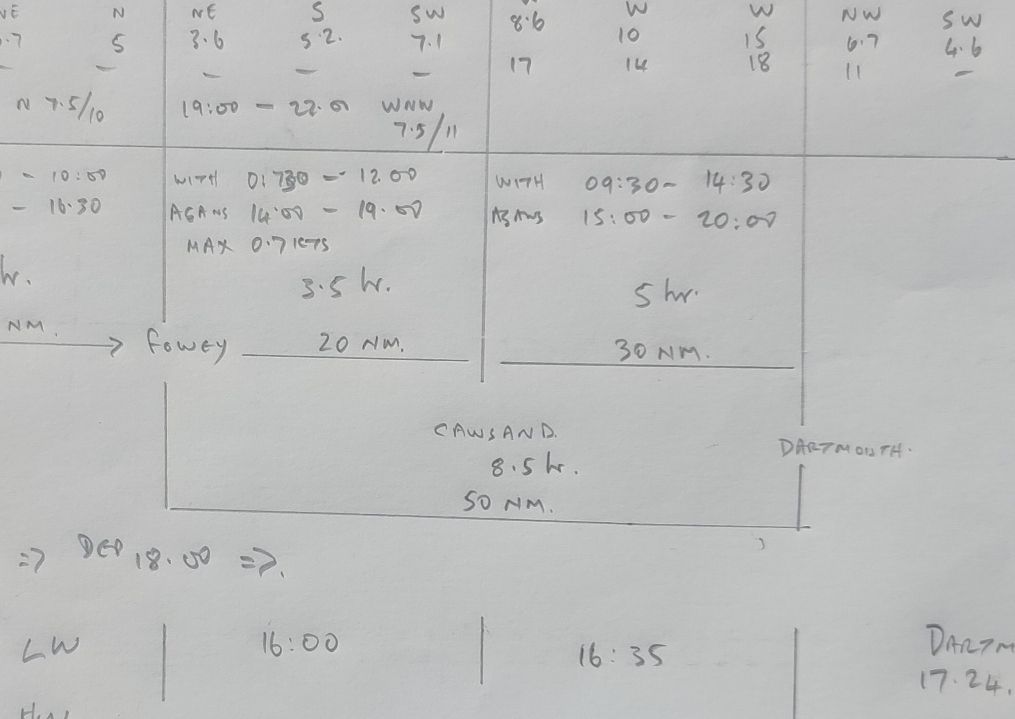 NE N NE S SW 8.6 W W NW SW
.7 5 3.6 5.2. 7.1 10 15 6.7 4.6
— — — — — 17 14 18 11 —
N 7.5/10 19:00 — 22.0 WNW
7.5/11
– 10:00 WITH 07:30 – 12.00 WITH 09:30– 14:30
– 16.30 AGANS 14:00 – 19.00 AGANS 15:00 – 20:00
MAX 0.7 KTS
hr. 3.5 hr. 5 hr.
NM. → Fowey 20 NM. 30 NM.
CAWSAND.
DARTMOUTH.
8.5 hr.
50 NM.
=> DEP 18.00 =>.
LW 16:00 16:35 DARTM
17.24.
HW